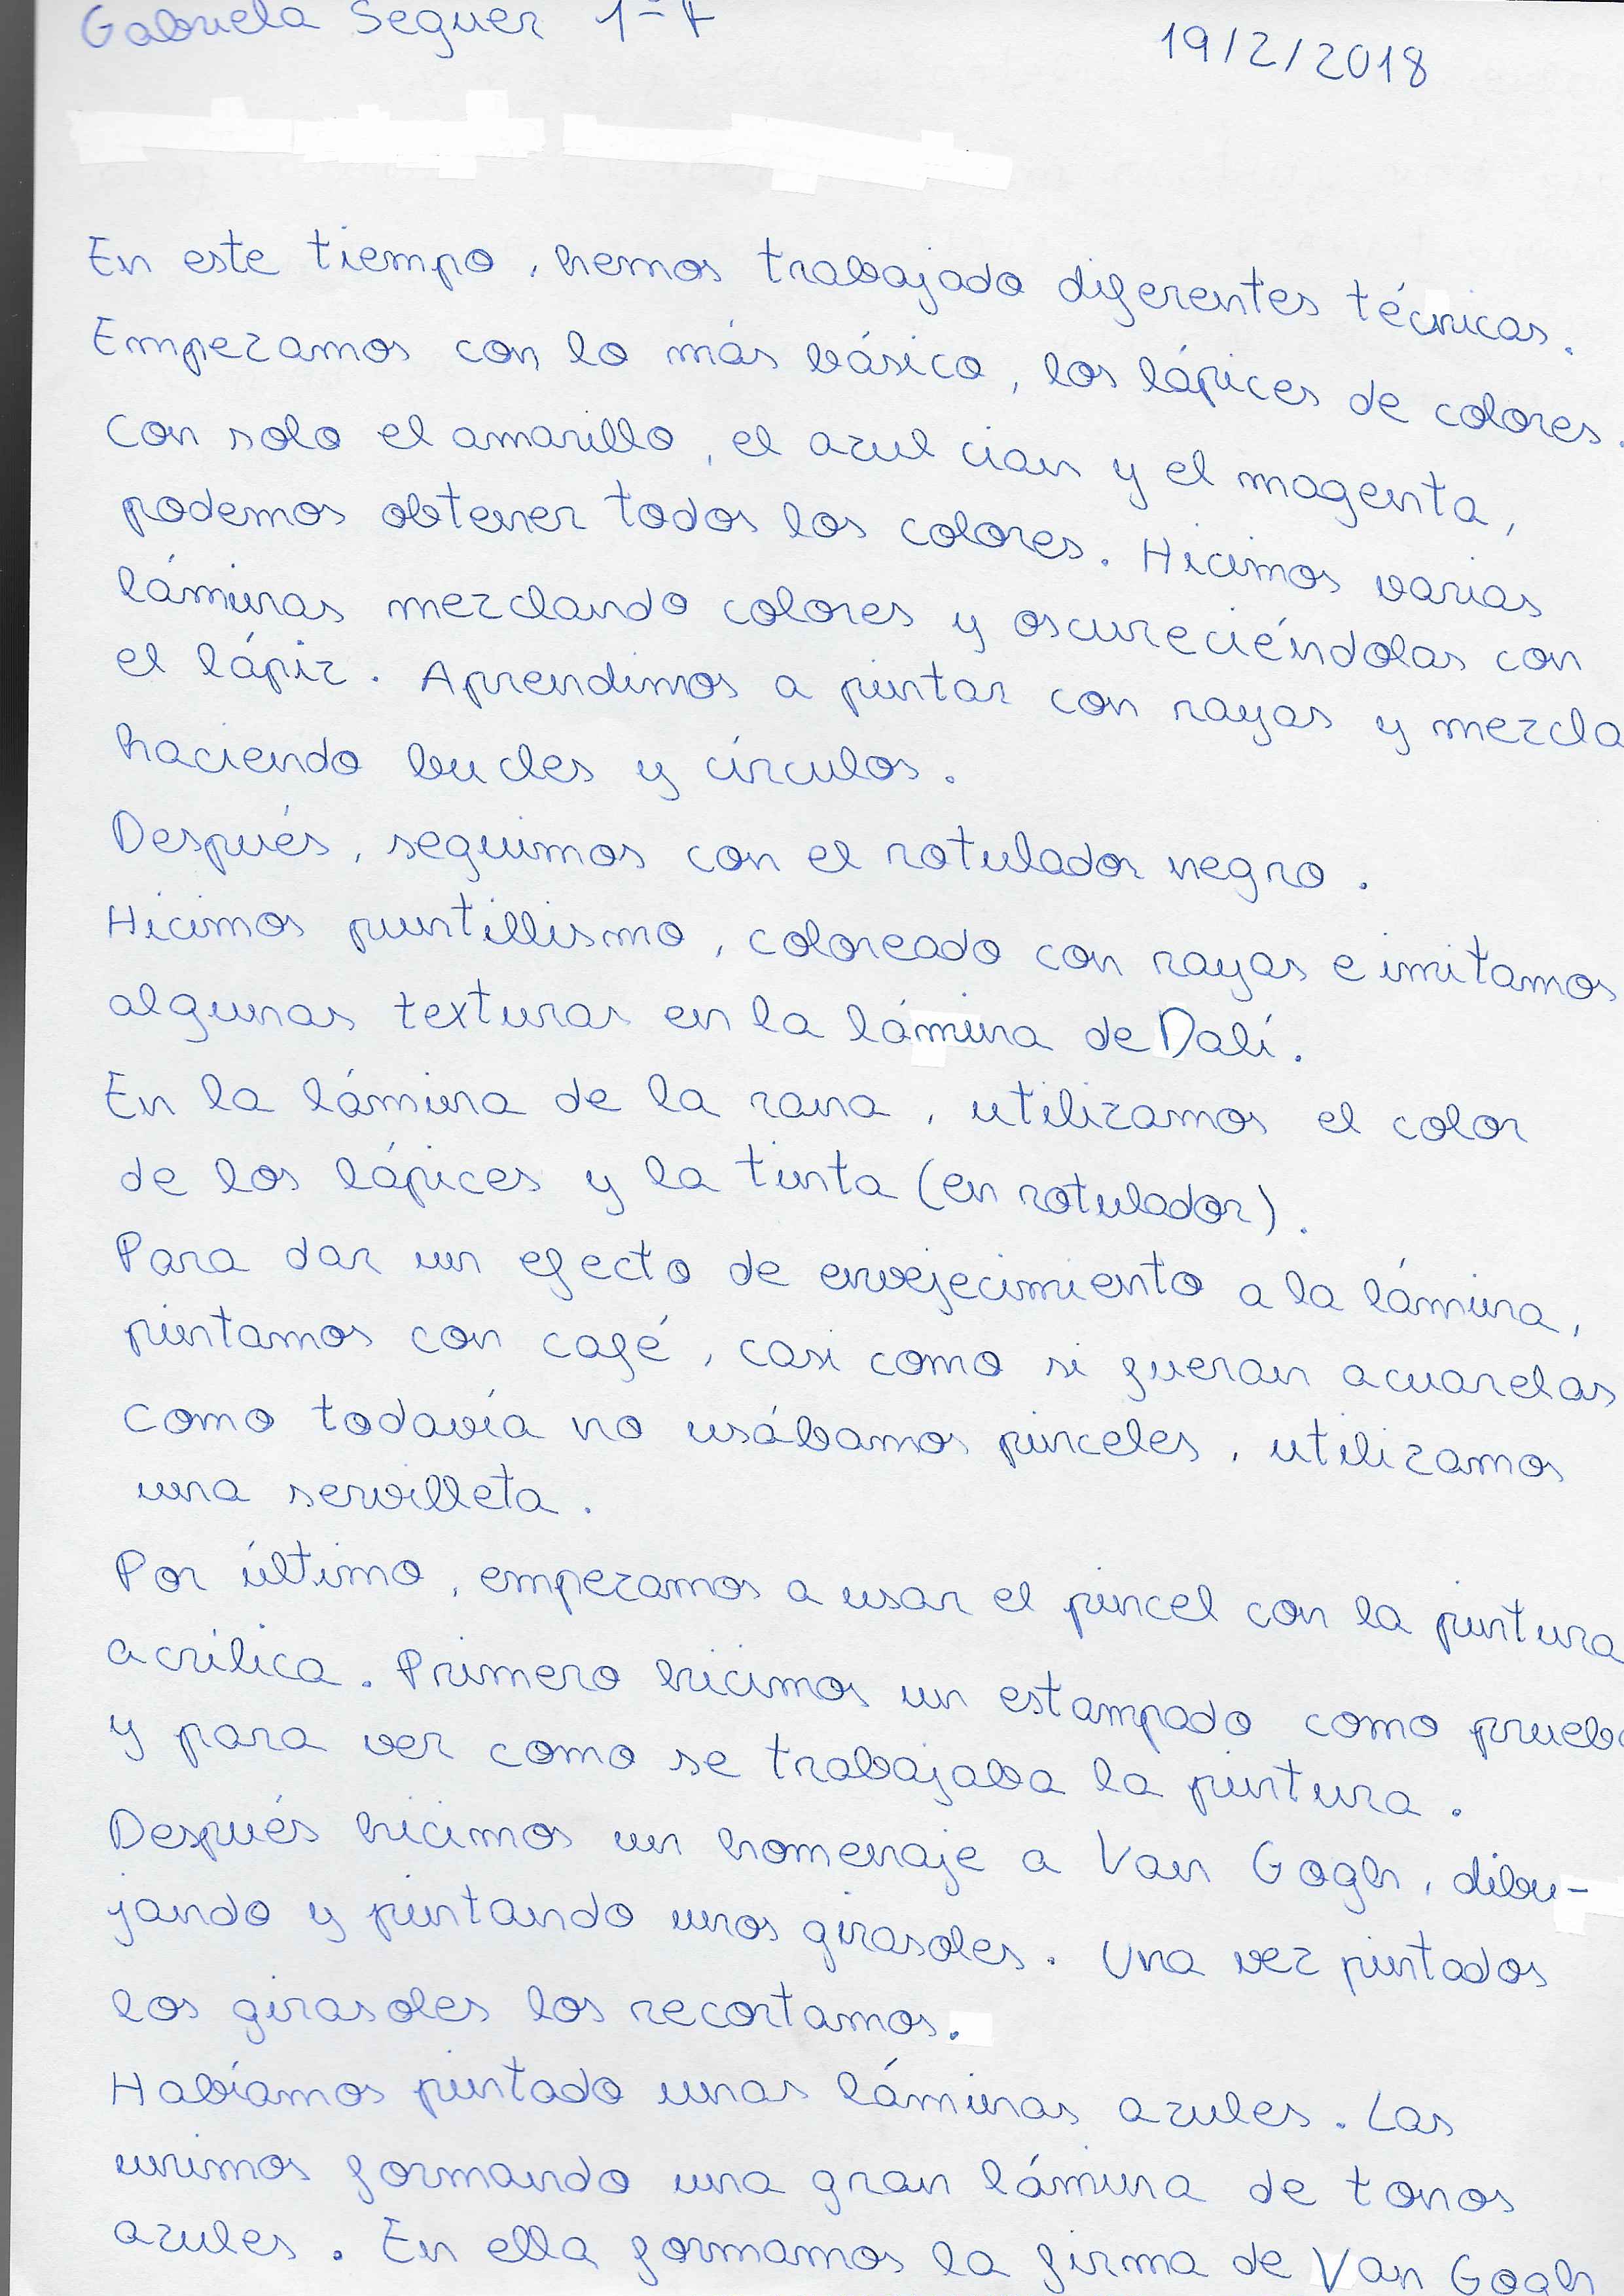 Gabriela Seguer 1º
19/2/2018
En este tiempo, hemos trabajado diferentes técnicas.
Empezamos con lo más básico, los lápices de colores.
Con solo el amarillo, el azul cian y el magenta,
podemos obtener todos los colores. Hicimos varias
láminas mezclando colores y oscureciéndolas con
el lápiz. Aprendimos a pintar con rayas y mezcla
haciendo bucles y círculos.
Después, seguimos con el rotulador negro.
Hicimos puntillismo, coloreado con rayas e imitamos
algunas texturas en la lámina de Dalí.
En la lámina de la rana, utilizamos el color
de los lápices y la tinta (en rotulador).
Para dar un efecto de envejecimiento a la lámina,
pintamos con café, casi como si fueran acuarelas
como todavía no usábamos pinceles, utilizamos
una servilleta.
Por último, empezamos a usar el pincel con la pintura
acrílica. Primero hicimos un estampado como prueba
y para ver como se trabajaba la pintura.
Después hicimos un homenaje a Van Gogh, dibu-
jando y pintando unos girasoles. Una vez pintados
los girasoles los recortamos.
Habíamos pintado unas láminas azules. Las
unimos formando una gran lámina de tonos
azules. En ella formamos la firma de Van Gogh